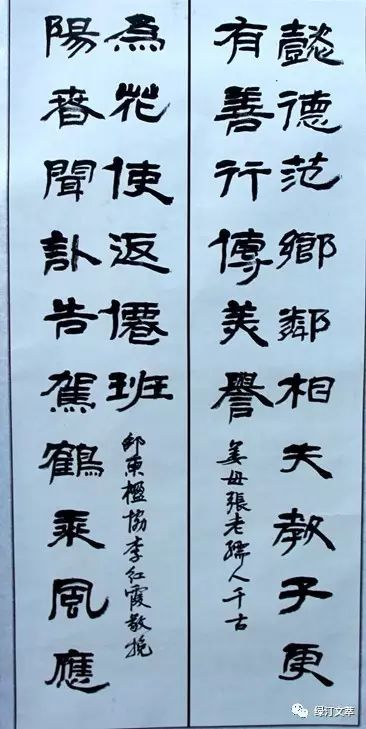 懿德范鄉鄰相夫教子更
有善行傳美譽
姜母張老孺人千古
陽春聞訃告駕鶴乘風應
為花使返僊班
邵東楹協李紅霞敬挽
绿汀文萃